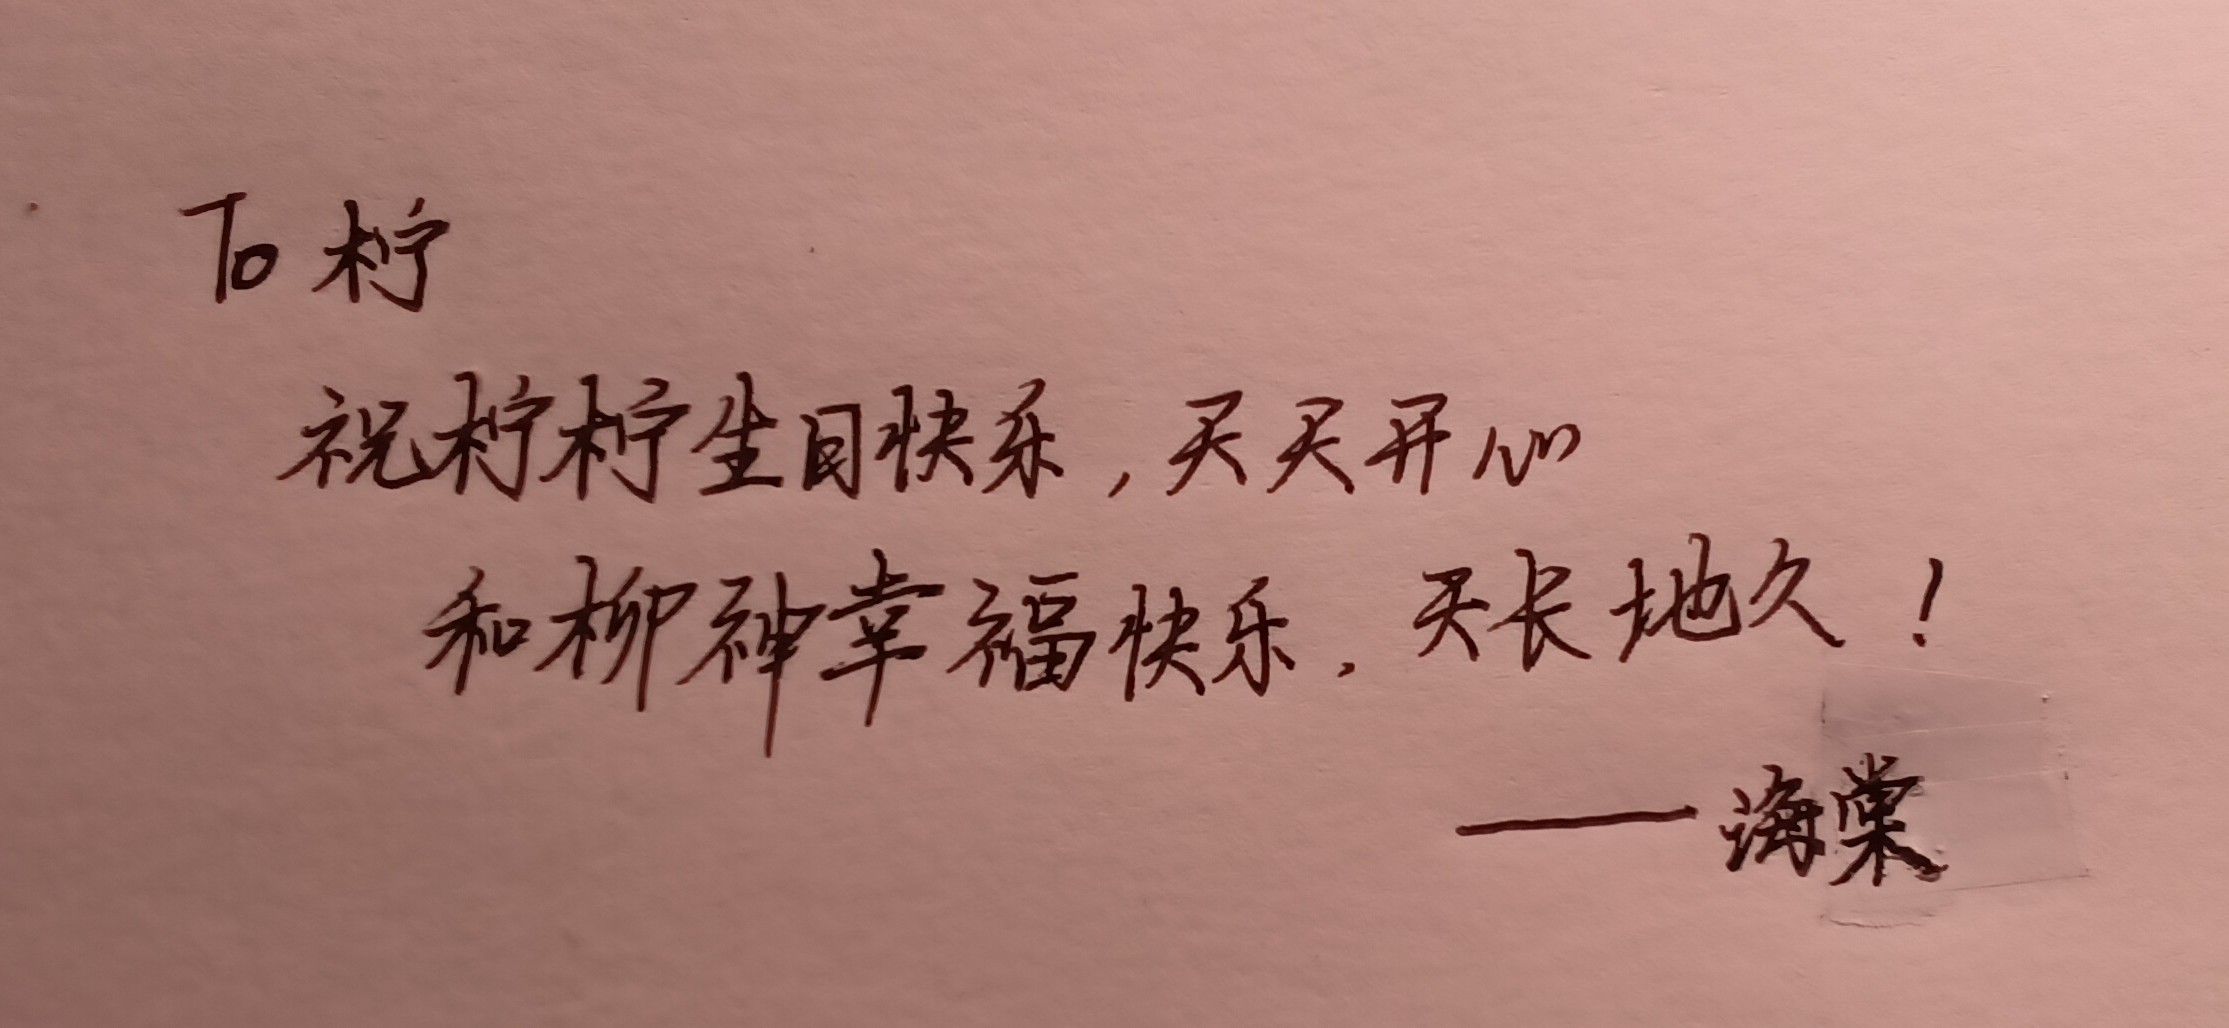 To 柠
祝柠柠生日快乐，天天开心
和柳神幸福快乐，天长地久！
——海棠